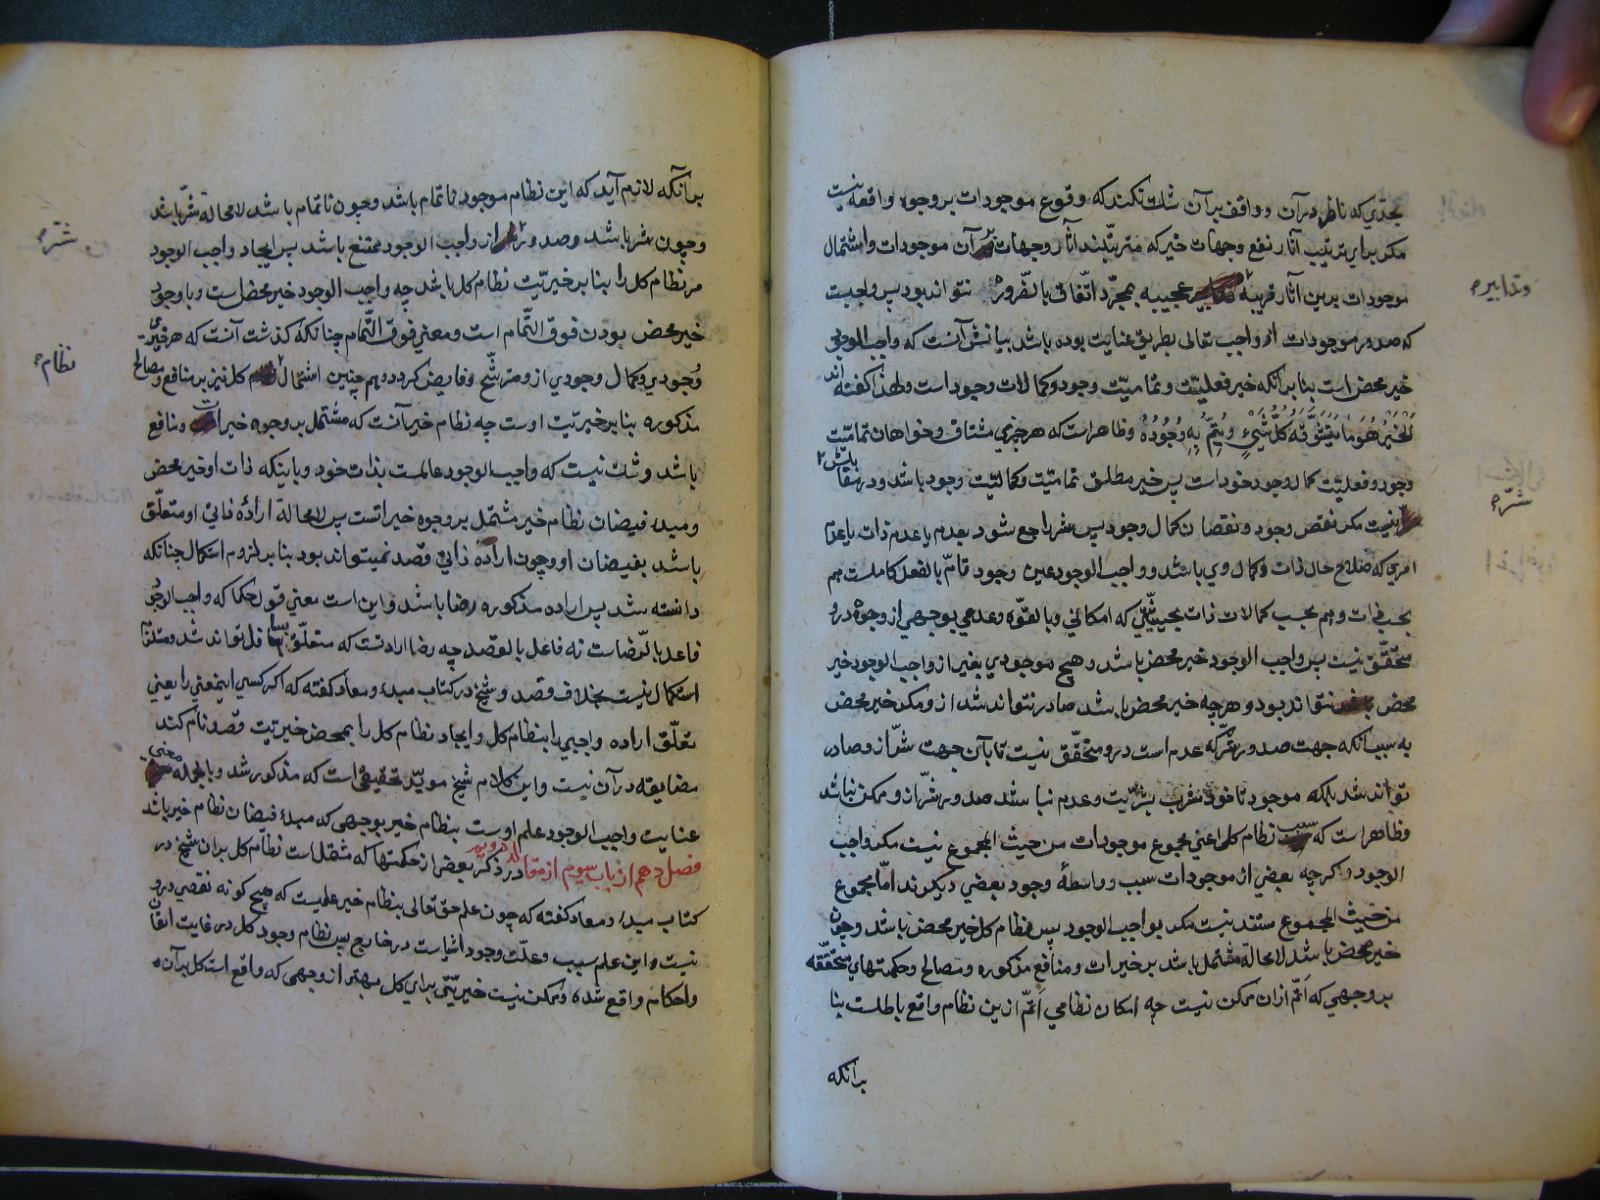 بحدّی که ناظر در آن و واقف بر آن شک نکند که وقوع موجودات بر وجوه واقعه نیست
مکر برای ترتیب آثار نفع و جهات خیر که مترتّبند آثار و جهات بر آن موجودات و اشتمال
موجودات برین آثار قریبه عجیبه بمجرّد اتّفاق بالضّروره نتواند بود پس واجبست
وتدابیر
که صدور موجودات از واجب تعالی بطریق عنایت بوده باشد بیانش آنست که واجب الوجود
خیر محض است بنا بر آنکه خیر فعلیّت و تمامیّت وجود و کمالات وجود است و لهذا کفته اند
اَلْخَیْرُ هُوَ مَا یَتَشَوَّقُهُ کُلُّ شَیْءٍ وَیَتِمُّ بِهِ وُجُودُهُ و ظاهر است که هر چیزی مشتاق و خواهان تمامیّت
وجود و فعلیّت کمال وجود خود است پس خیر مطلق تمامیّت و کمالیّت وجود باشد و در مقابلش
شرّ
نیست مکر نقص وجود و نقصان کمال وجود پس شر راجع شود بعدم یا عدم ذات یا عدم
امری که صلاح حال ذات و کمال وی باشد و واجب الوجود عین وجود قائم بالفعل کاملست هم
بحسب ذات و هم بحسب کمالات ذات بحیثیّتی که امکانی و بالقوّه و عدمی بوجهی از وجوه در و
متحقّق نیست پس واجب الوجود خیر محض باشد و هیچ موجودی بغیر از واجب الوجود خیر
محض نتواند بود و هر چه خیر محض باشد صادر نتواند شد ازو مکر خیر محض
به سبب آنکه جهت صدور شرّ که عدم است درو متحقّق نیست تا بآن جهت شرّ ازو صادر
تواند شد بلکه موجود تا خود مشرب بشرّیت و عدم نباشد صدور شرّ ازو ممکن نباشد
و ظاهر است که سبب نظام کل اعنی مجموع موجودات من حیث المجموع نیست مکر واجب
الوجود و اکرچه بعضی از موجودات سبب و واسطهٔ وجود بعضی دیکرند امّا مجموع
من حیث المجموع مستند نیست مکر بواجب الوجود پس نظام کل خیر محض باشد و چون
خیر محض باشد لامحاله مشتمل باشد بر خیرات و منافع مذکوره و مصالح و حکمتهای متحقّقه
بر وجهی که اتمّ ازان ممکن نیست چه امکان نظامی اَتمّ ازین نظام واقع باطلست بنا
بر آنکه
بر آنکه لازم آید که این نظام موجود ناتمام باشد و چون ناتمام باشد لامحاله شرّ باشد
شرّ
و چون شر باشد صدور از واجب الوجود ممتنع باشد پس ایجاد واجب الوجود
مر نظام کل را بنا بر خیریّت نظام کل باشد چه واجب الوجود خیر محض است و با وجود
خیر محض بودن فوق التّمام است و معنی فوق التّمام چنانکه کذشت آنست که هر خیری
نظام
وُجودی و کمال وجودی ازو مترشّح و فایض کردد و هم چنین اشتمال کل نیز بر منافع و مصالح
مذکوره بنا بر خیریّت اوست چه نظام خیر آنست که مشتمل بر وجوه خیرات و منافع
باشد و شک نیست که واجب الوجود عالمست بذات خود و باینکه ذات او خیر محض
و مبدء فیضان نظام خیر مشتمل بر وجوه خیراتست پس لامحاله ارادهٔ ذاتی او متعلّق
باشد بفیضان او و چون ارادهٔ ذاتی قصد نمیتواند بود بنا بر لزوم استکمال چنانکه
دانسته شد پس اراده مذکوره رضا باشد و این است معنی قول حکما که واجب الوجود
فاعل بالرّضاست نه فاعل بالقصد چه رضا ارادتست که متعلّق بسافل تواند شد و مستلزم
استکمال نیست بخلاف قصد و شیخ در کتاب مبدء و معاد کفته که اکر کسی اینمعنی را یعنی
تعلّق اراده واجبی را بنظام کل و ایجاد نظام کل را بمحض خیریّت قصد نام کند
مضایقه در آن نیست و این کلام شیخ مویّد تحقیقی است که مذکور شد و بالجمله معنی
عنایت واجب الوجود علم اوست بنظام خیر بوجهی که مبدء فیضان نظام خیر باشد
فصل دهم از باب سیوم از مقاله دویم در ذکر بعضی از حکمتها که مشتملست نظام کل بران شیخ در
کتاب مبدء و معاد کفته که چون علم حق تعالی بنظام خیر علمیست که هیچ کونه نقصی درو
نیست و این علم سبب و علّت وجود اشیاست در خارج پس نظام وجود کل در غایت اتقان
و احکام واقع شده و ممکن نیست خیریّتی برای کل بهتر از وجهی که واقع است کل بر آن